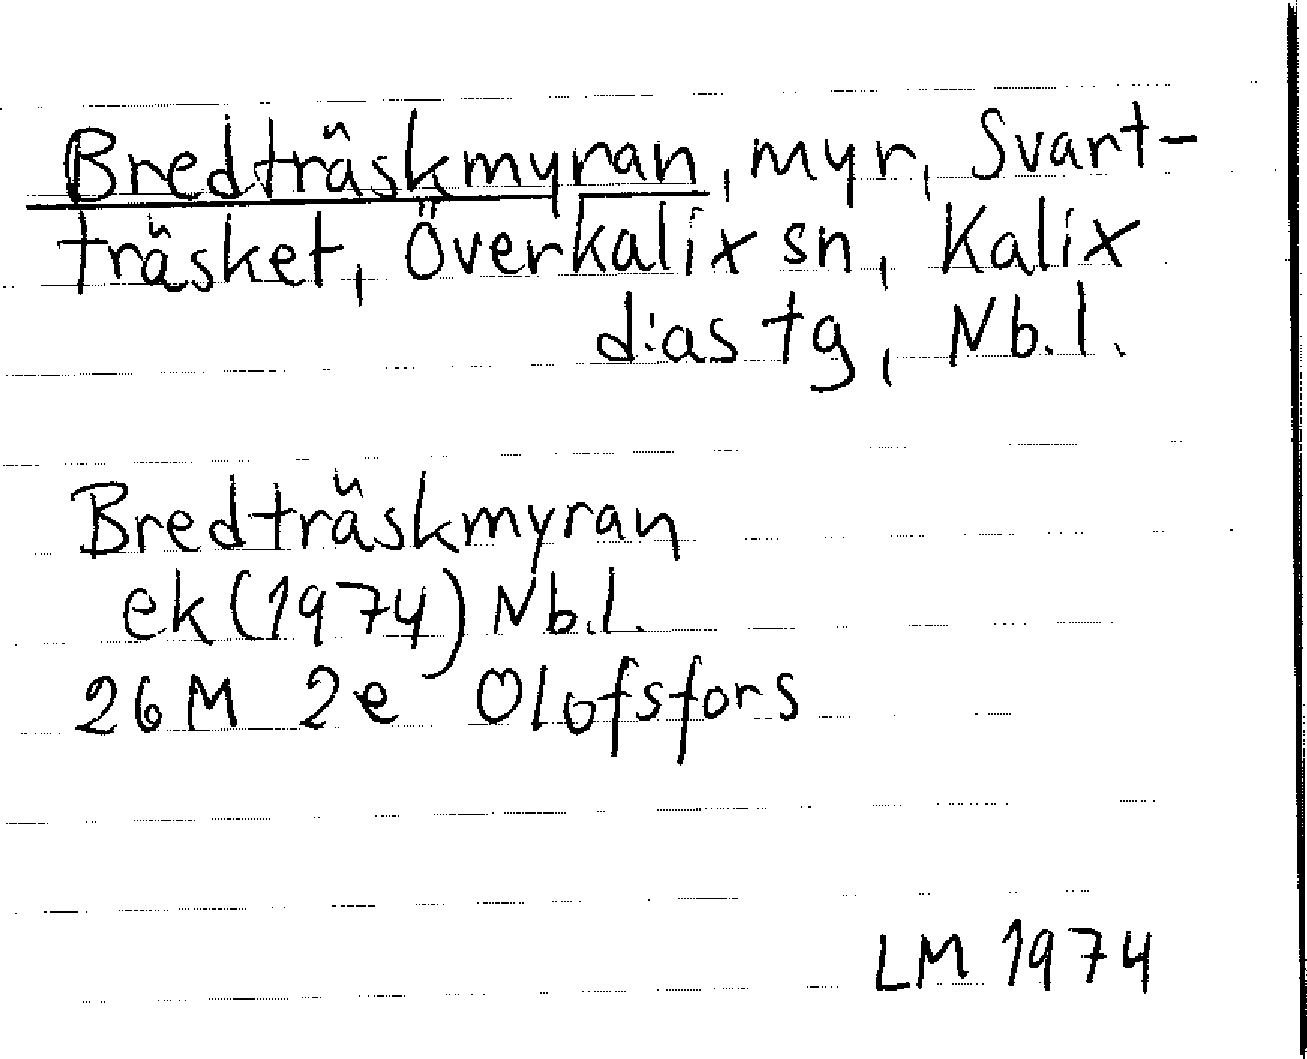 Bredträskmyran, myr, Svart-
träsket, Överkalix sn, Kalix
d:as tg, Nb.l.
Bredträskmyran
ek (1974) Nb.l.
26 M 2e Olofsfors
LM 1974